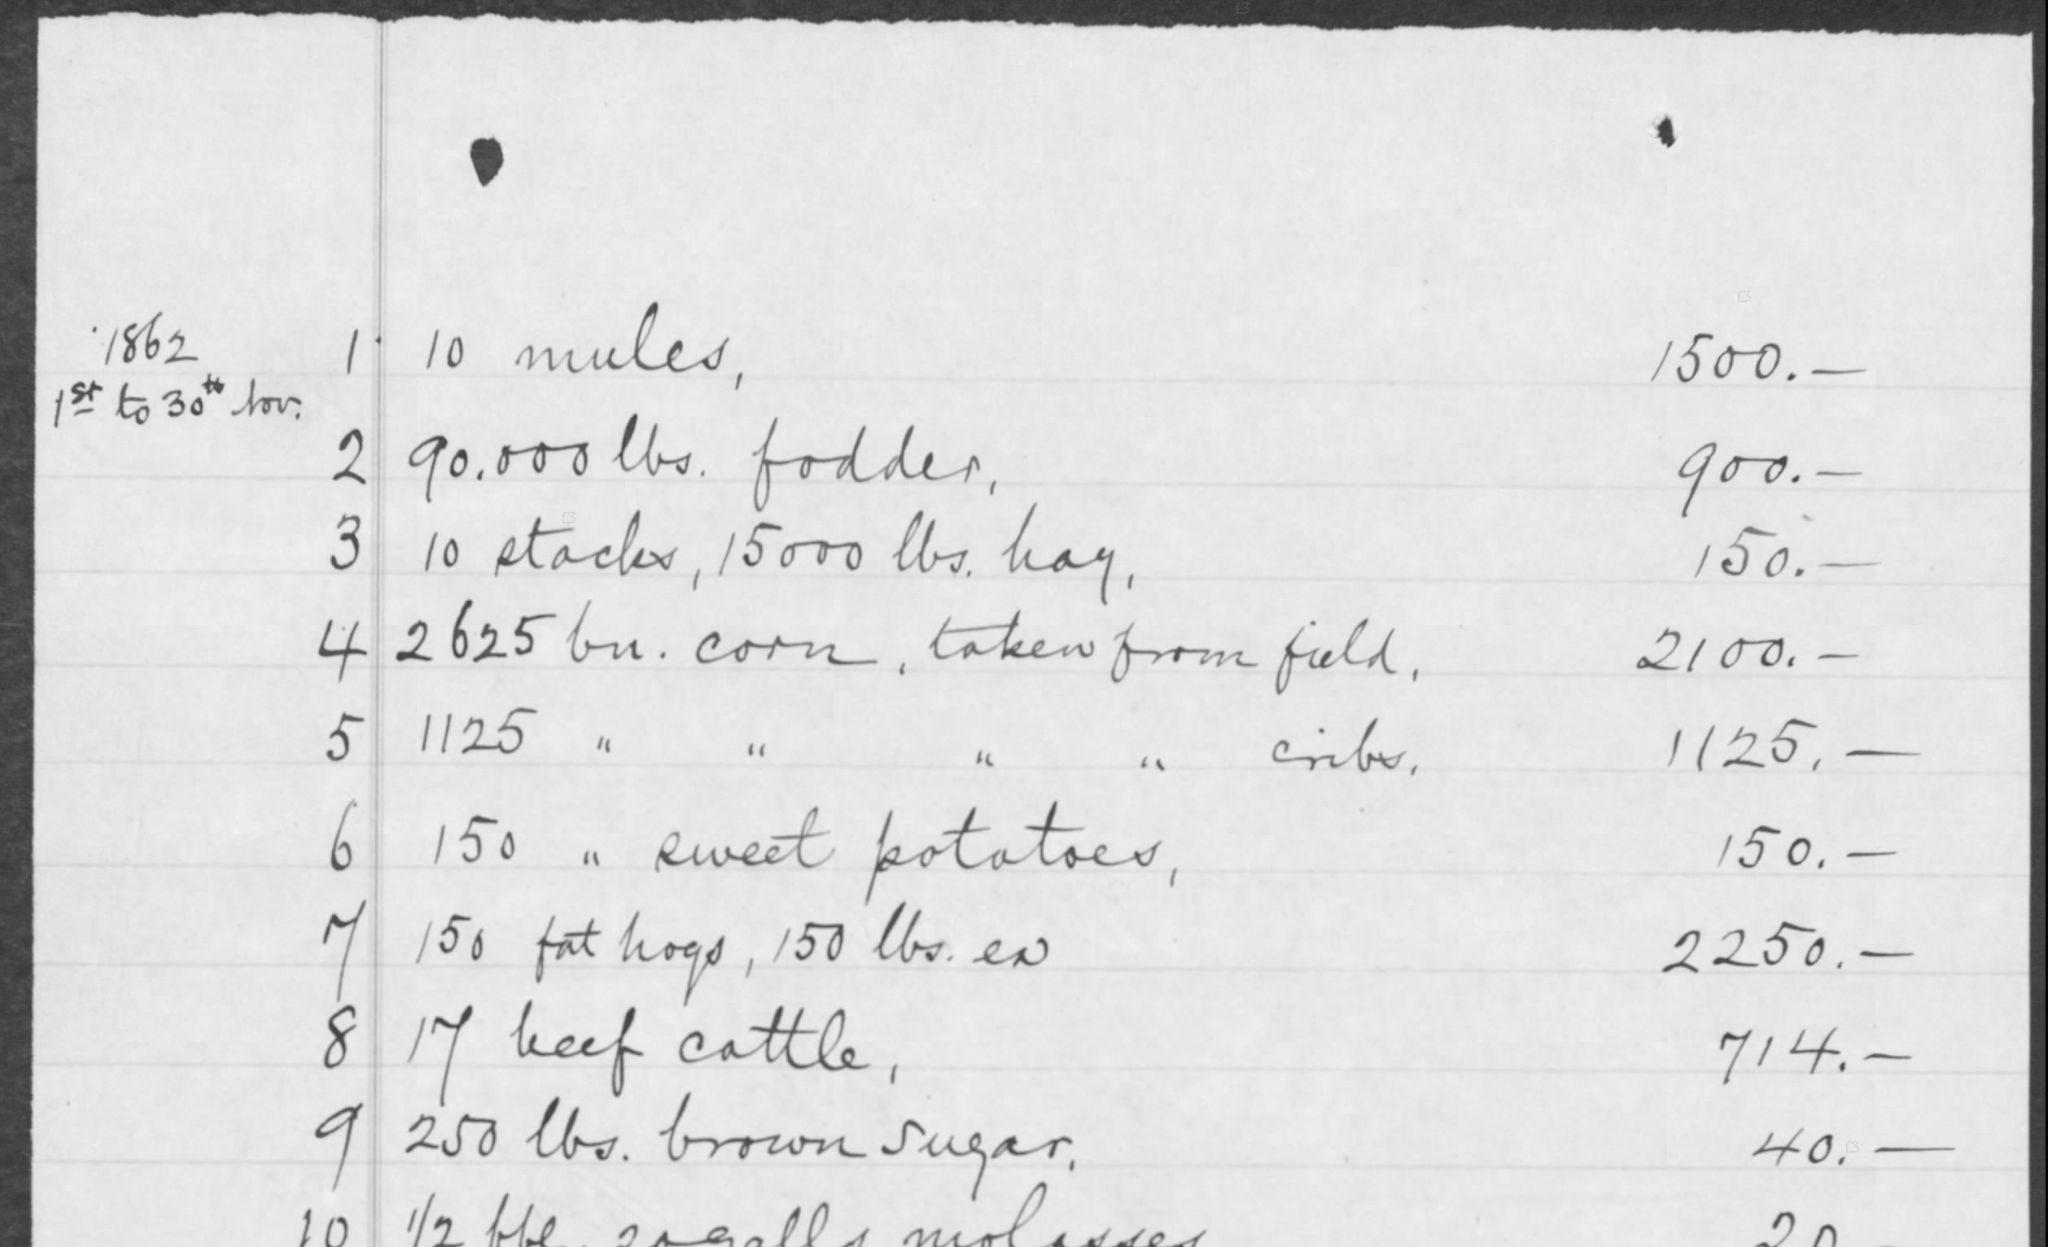 1862 1 10 mules, 1500.—
1st to 30th Nov.
2 90.000 lbs. fodder, 900.—
3 10 stacks, 15000 lbs. hay, 150.—
4 2625 bu. corn, taken from field, 2100.—
5 1125 " " " " cribs. 1125.—
6 150 " sweet potatoes, 150.—
7 150 fat hogs, 150 lbs. ea 2250.—
8 17 beef cattle, 714.—
9 250 lbs. brown sugar. 40.—
10 1/2 bbl. 20 galls molasses 20.—